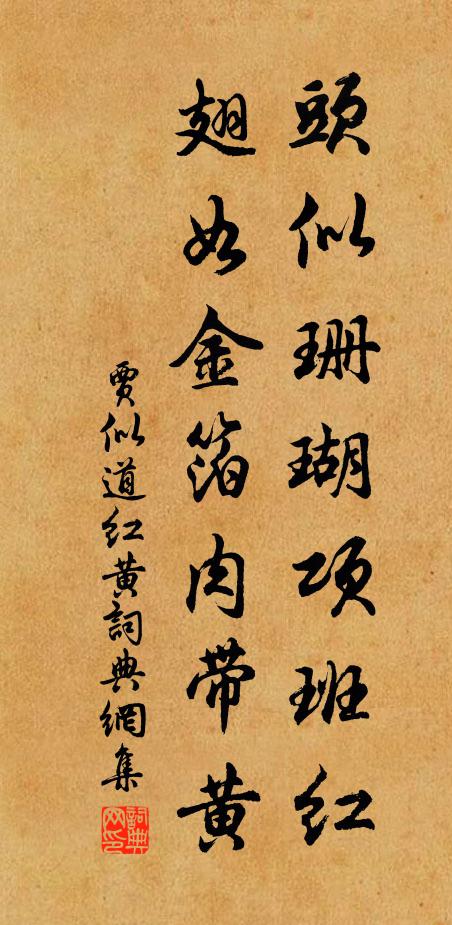 頭似珊瑚項班紅
翅如金箔肉帶黃
賈似道紅黃詞典網集
詞典網印